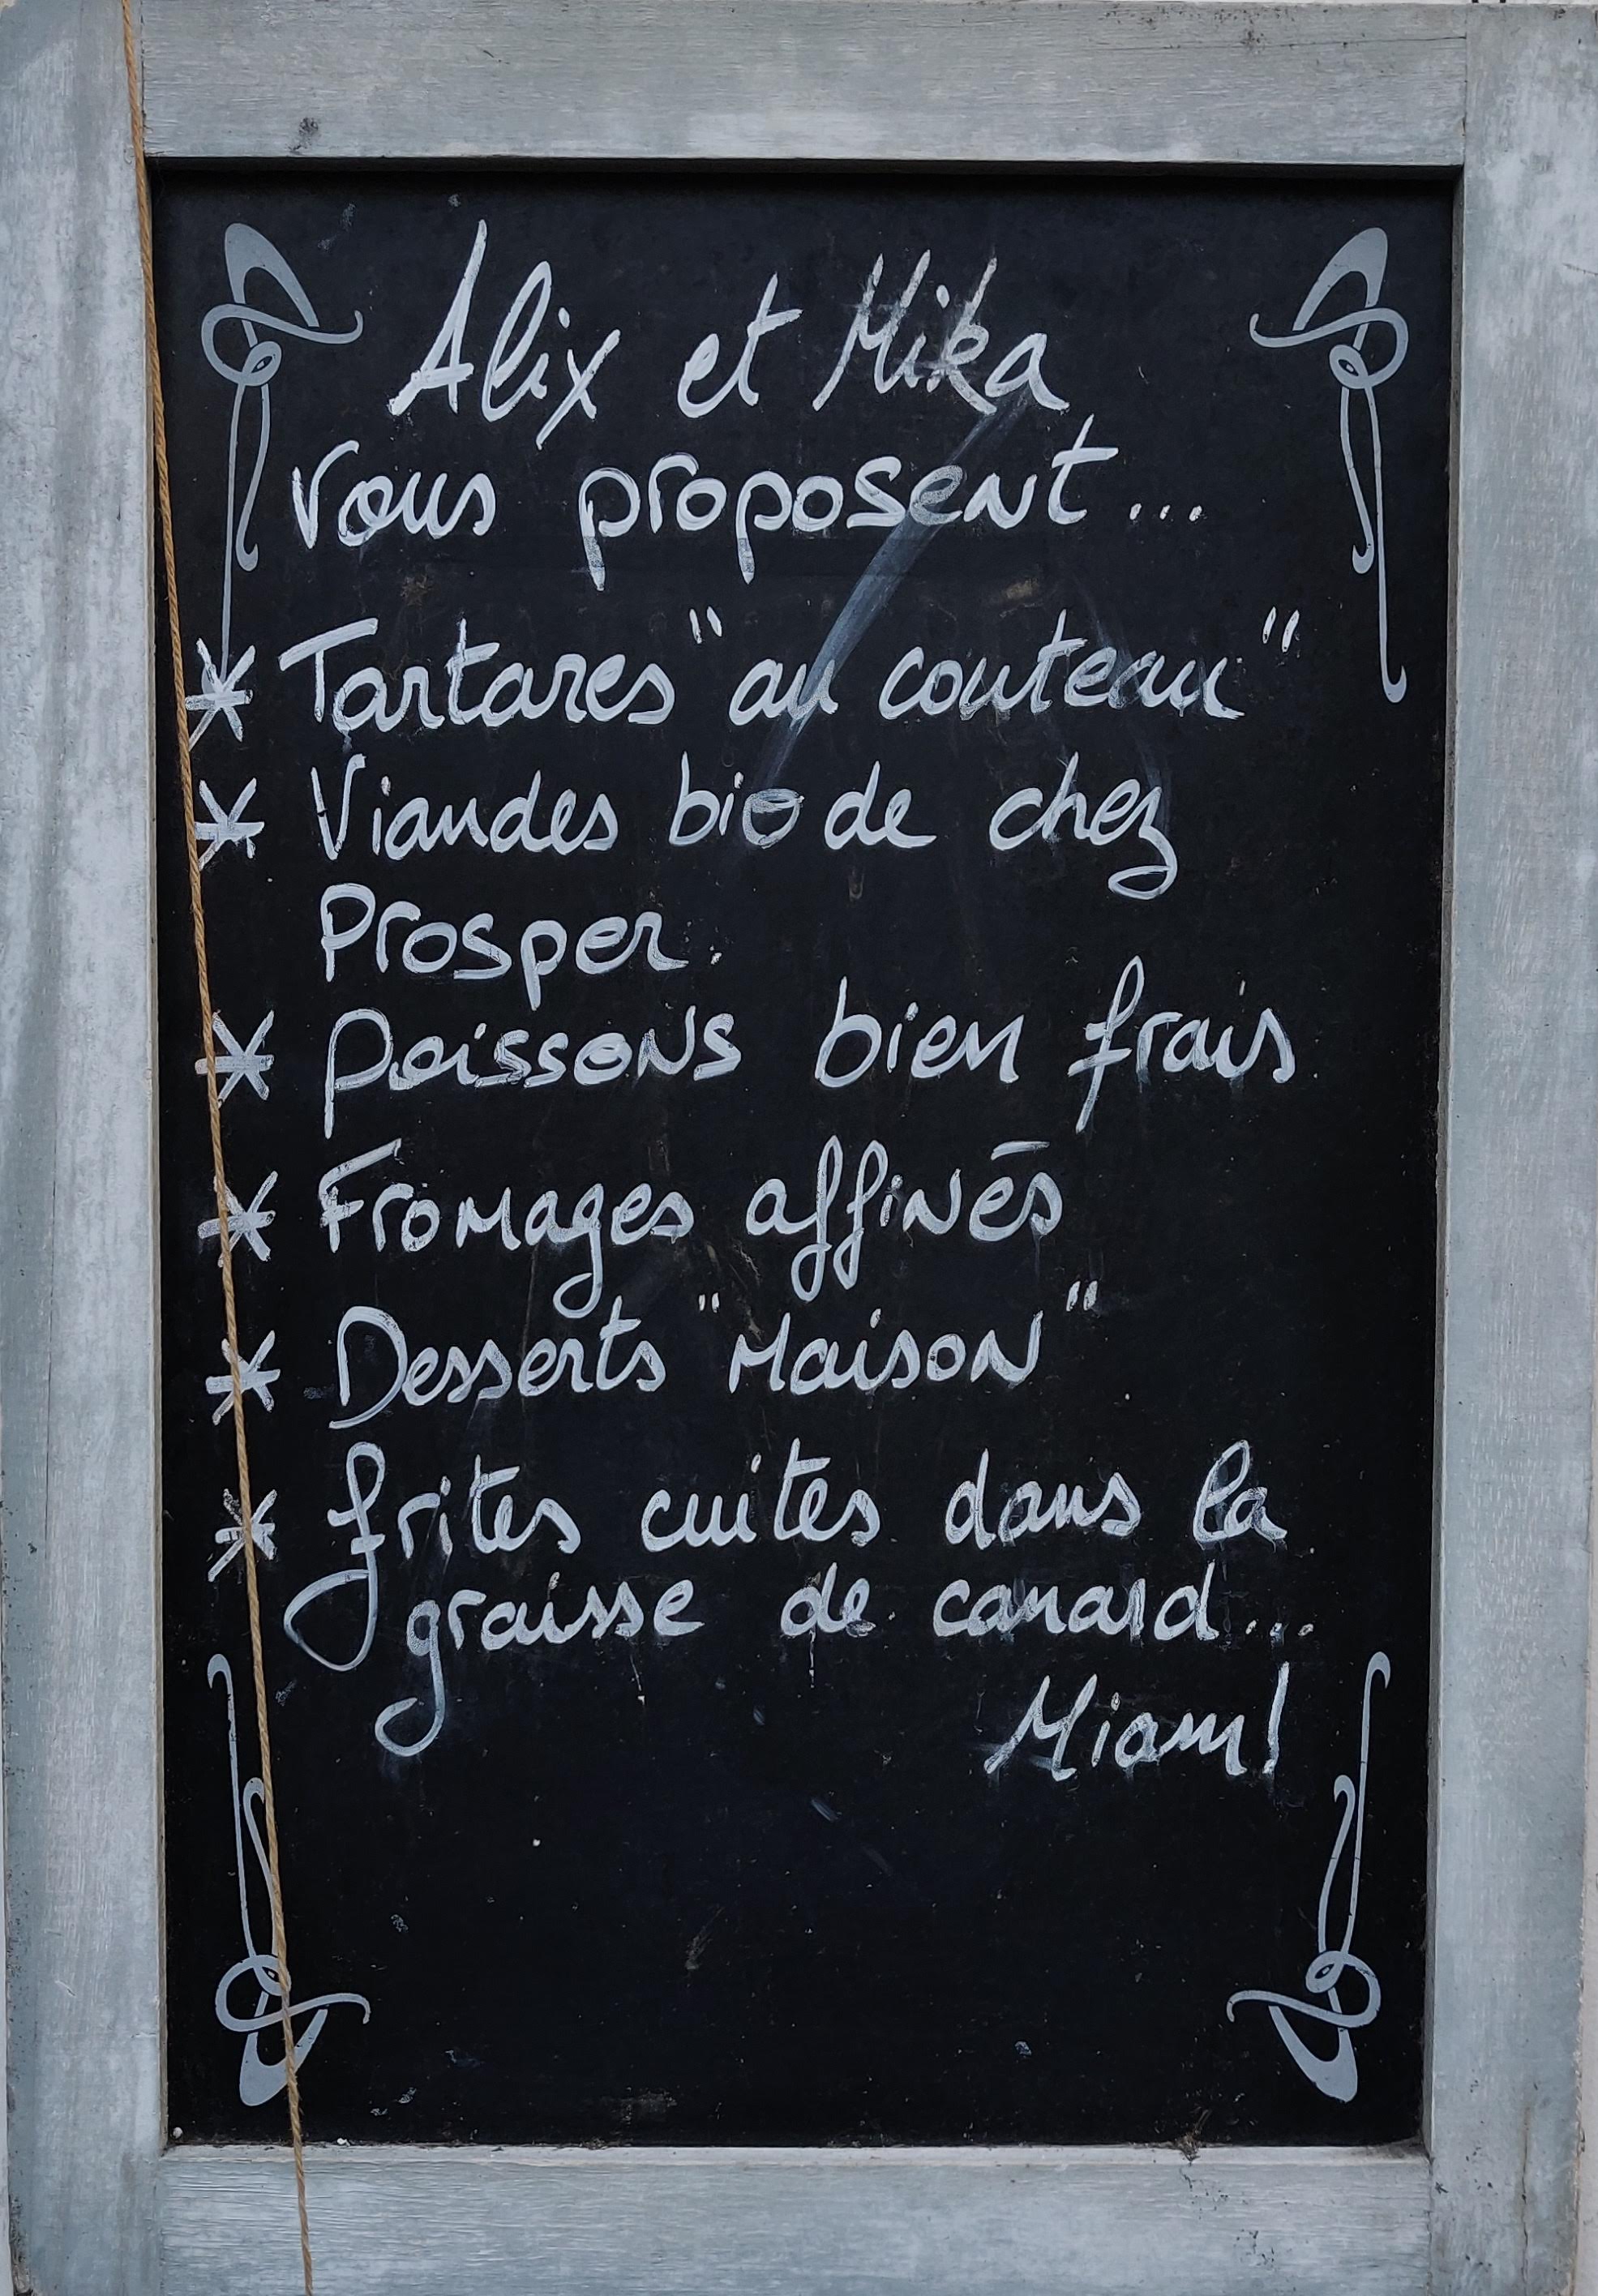 Alix et Mika
vous proposent...
* Tartares "au couteau"
* Viandes bio de chez
Prosper.
* Poissons bien frais
* Fromages affinés
* Desserts "Maison"
* frites cuites dans la
graisse de canard...
Miam!